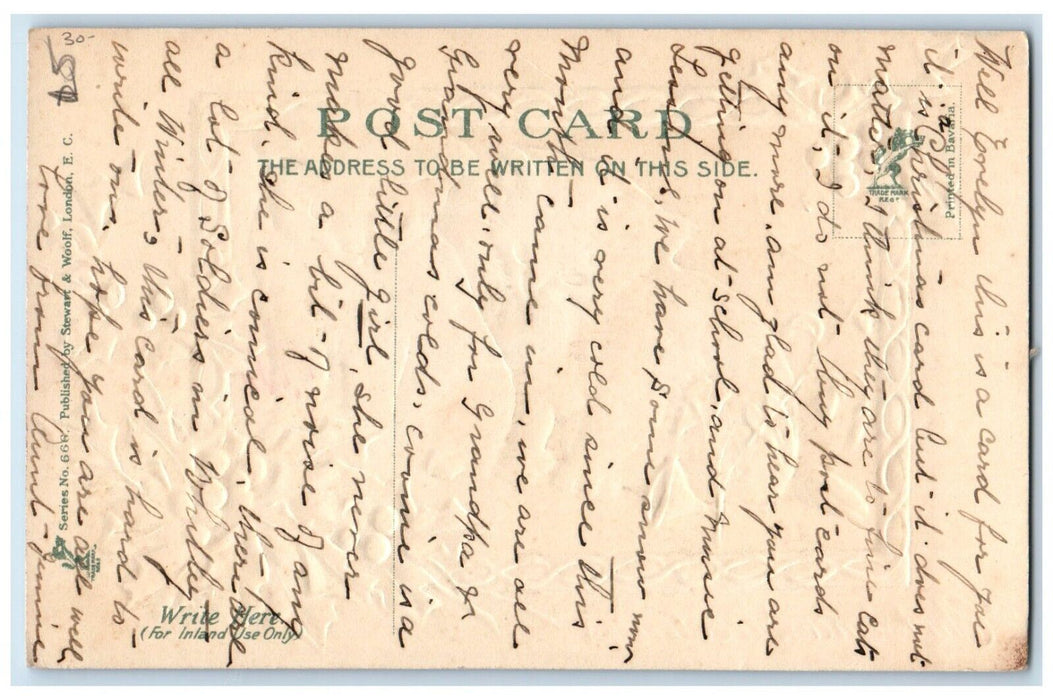 Well Evelyn this is a card for you
it is a Christmas card but it does not
matter. I think they are to fine cats
on it, I do not buy post cards
any more, am glad to hear you are
getting on at school, and music
Lessons, we have some snow now
and it is very cold since this
Month came in, we are all
very well, only for Grandpa &
Grandmas colds, comie is a
good little girl, she never
makes a bit of noise of any
kind, she is comical, there
a lot of Soldiers in Whitby
all Winter, this card is hard to
write on, hope you are all well
Love from Aunt Jennie
POST CARD
THE ADDRESS TO BE WRITTEN ON THIS SIDE.
TRADE MARK
Printed in Bavaria.
Series No. 666. Published by Stewart & Woolf, London, E. C.
Write Here.
(For Inland Use Only)
30-